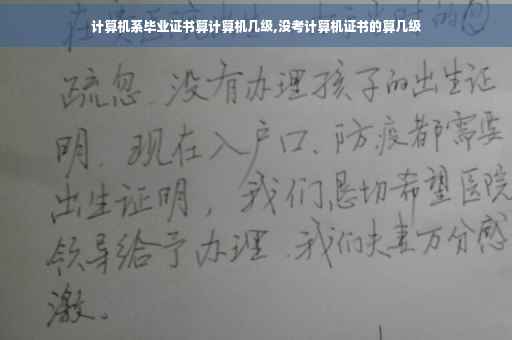 计算机系毕业证书算计算机几级,没考计算机证书的算几级
疏忽、没有办理孩子的出生证
明、现在入户口、防疫都需要
出生证明，我们恳切希望医院
领导给予办理、我们夫妻万分感
激。